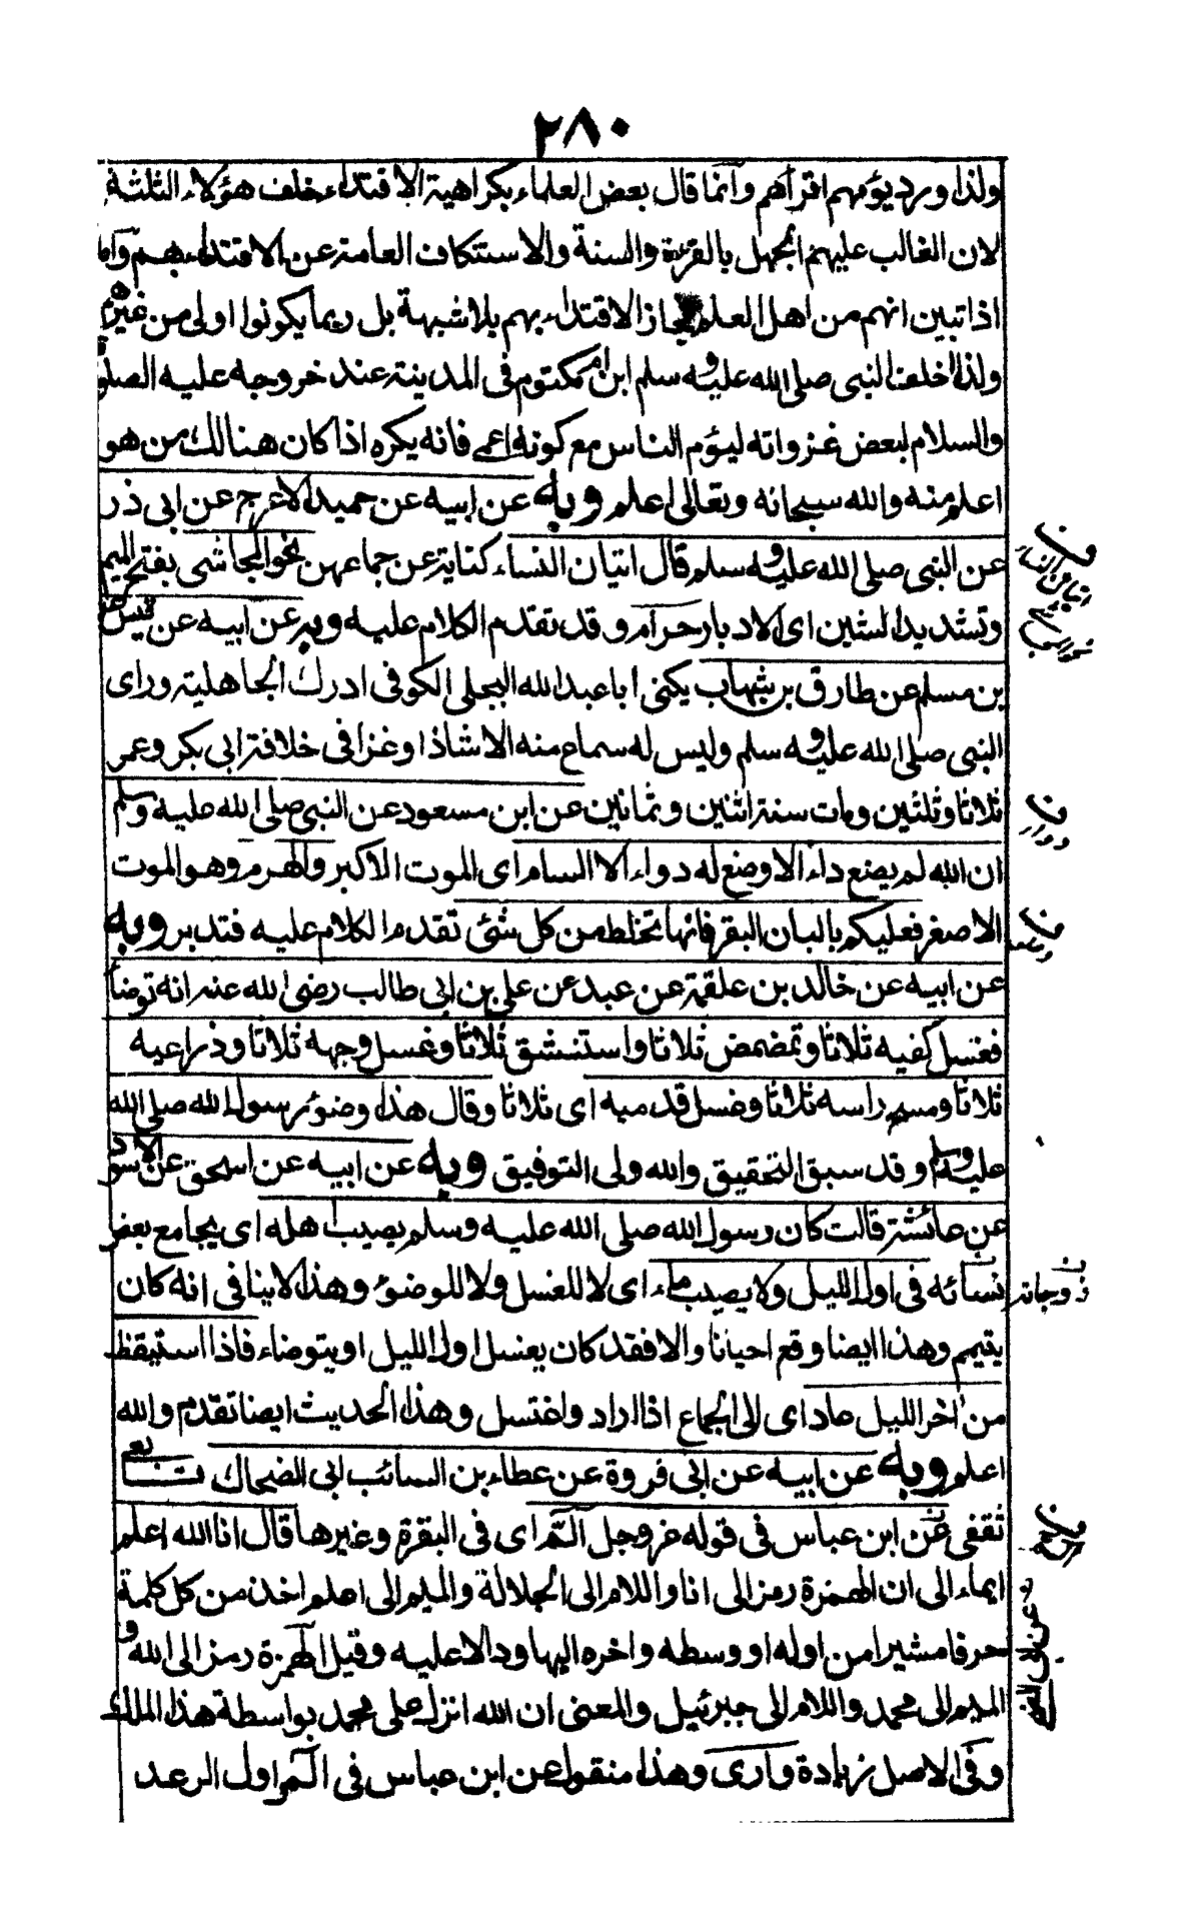 ٢٨٠
ولذا ورد يؤمهم اقرأهم وانما قال بعض العلماء بكراهية الاقتداء خلف هؤلاء الثلثة
لان الغالب عليهم الجهل بالقراءة والسنة والاستنكاف العامة عن الاقتداء بهم واما
اذا تبين انهم من اهل العلم فجاز الاقتداء بهم بلا شبهة بل ربما يكونوا اولى من غيرهم
ولذا اخلف النبى صلى الله عليه وسلم ابن ام مكتوم فى المدينة عند خروجه عليه الصلوة
والسلام لبعض غزواته ليؤم الناس مع كونه اعمى فانه يكره اذا كان هنالك من هو
اعلم منه والله سبحانه وتعالى اعلم وبه عن ابيه عن حميد الاعرج عن ابى ذر
عن النبى صلى الله عليه وسلم قال اتيان النساء كناية عن جماعهن نحو المحاشى بفتح الميم
وتشديد الشين اى الادبار حرام وقد تقدم الكلام عليه وبه عن ابيه عن قيس
بن مسلم عن طارق بن شهاب يكنى ابا عبد الله البجلى الكوفى ادرك الجاهلية وراى
النبى صلى الله عليه وسلم وليس له سماع منه الا شاذا وغزا فى خلافة ابى بكر وعمر
ثلاثا وثلثين ومات سنة اثنين وثمانين عن ابن مسعود عن النبى صلى الله عليه وسلم
ان الله لم يضع داء الا وضع له دواء الا السام اى الموت الاكبر والهرم وهو الموت
الاصغر فعليكم بالبان البقر فانها تخلط من كل شئ تقدم الكلام عليه فتدبر وبه
عن ابيه عن خالد بن علقمة عن عبد عن على بن ابى طالب رضى الله عنه انه توضأ
فغسل كفيه ثلاثا وتمضمض ثلاثا واستنشق ثلاثا وغسل وجهه ثلاثا وذراعيه
ثلاثا ومسح راسه ثلاثا وغسل قدميه اى ثلاثا وقال هذا وضوء رسول الله صلى الله
عليه وسلم وقد سبق التحقيق والله ولى التوفيق وبه عن ابيه عن اسحق عن الاسود
عن عائشة قالت كان رسول الله صلى الله عليه وسلم يصيب اهله اى يجامع بعض
نسائه فى اول الليل ولا يصيب ماء اى لا للغسل ولا للوضوء وهذا لا ينافى انه كان
ن زوجاته
يتيمم وهذا ايضا وقع احيانا والا فقد كان يغسل اول الليل او يتوضاء فاذا استيقظ
من اخر الليل عاد اى الى الجماع اذا اراد واغتسل وهذا الحديث ايضا تقدم والله
اعلم وبه عن ابيه عن ابى فروة عن عطاء بن السائب ابى الضحاك تابعى
ثقفى عن ابن عباس فى قوله عز وجل الم اى فى البقرة وغيرها قال انا الله اعلم
ايماء الى ان الهمزة رمز الى انا واللام الى الجلالة والميم الى اعلم اخذ من كل كلمة
حرفا مشيرا من اوله او وسطه واخره اليها ودالا عليه وقيل الهمزة رمز الى الله و
الميم الى محمد واللام الى جبرئيل والمعنى ان الله انزل على محمد بواسطة هذا الملك
وفى الاصل زيادة وارى وهذا منقول عن ابن عباس فى المر اول الرعد